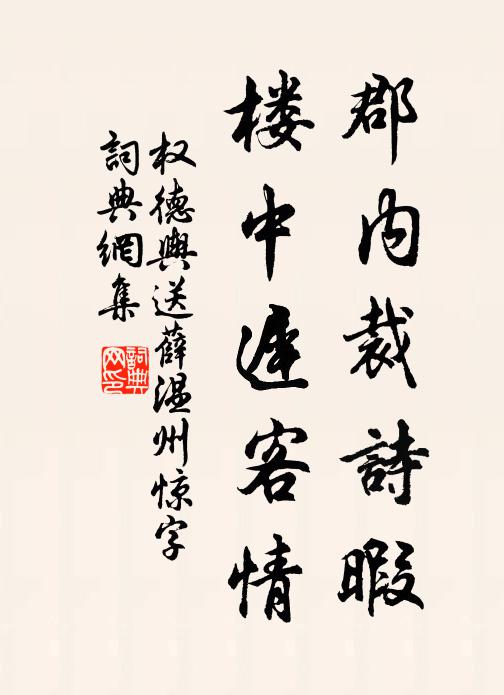 郡内裁詩暇
楼中遲客情
权德輿送薛温州惊字
詞典網集
詞典网印